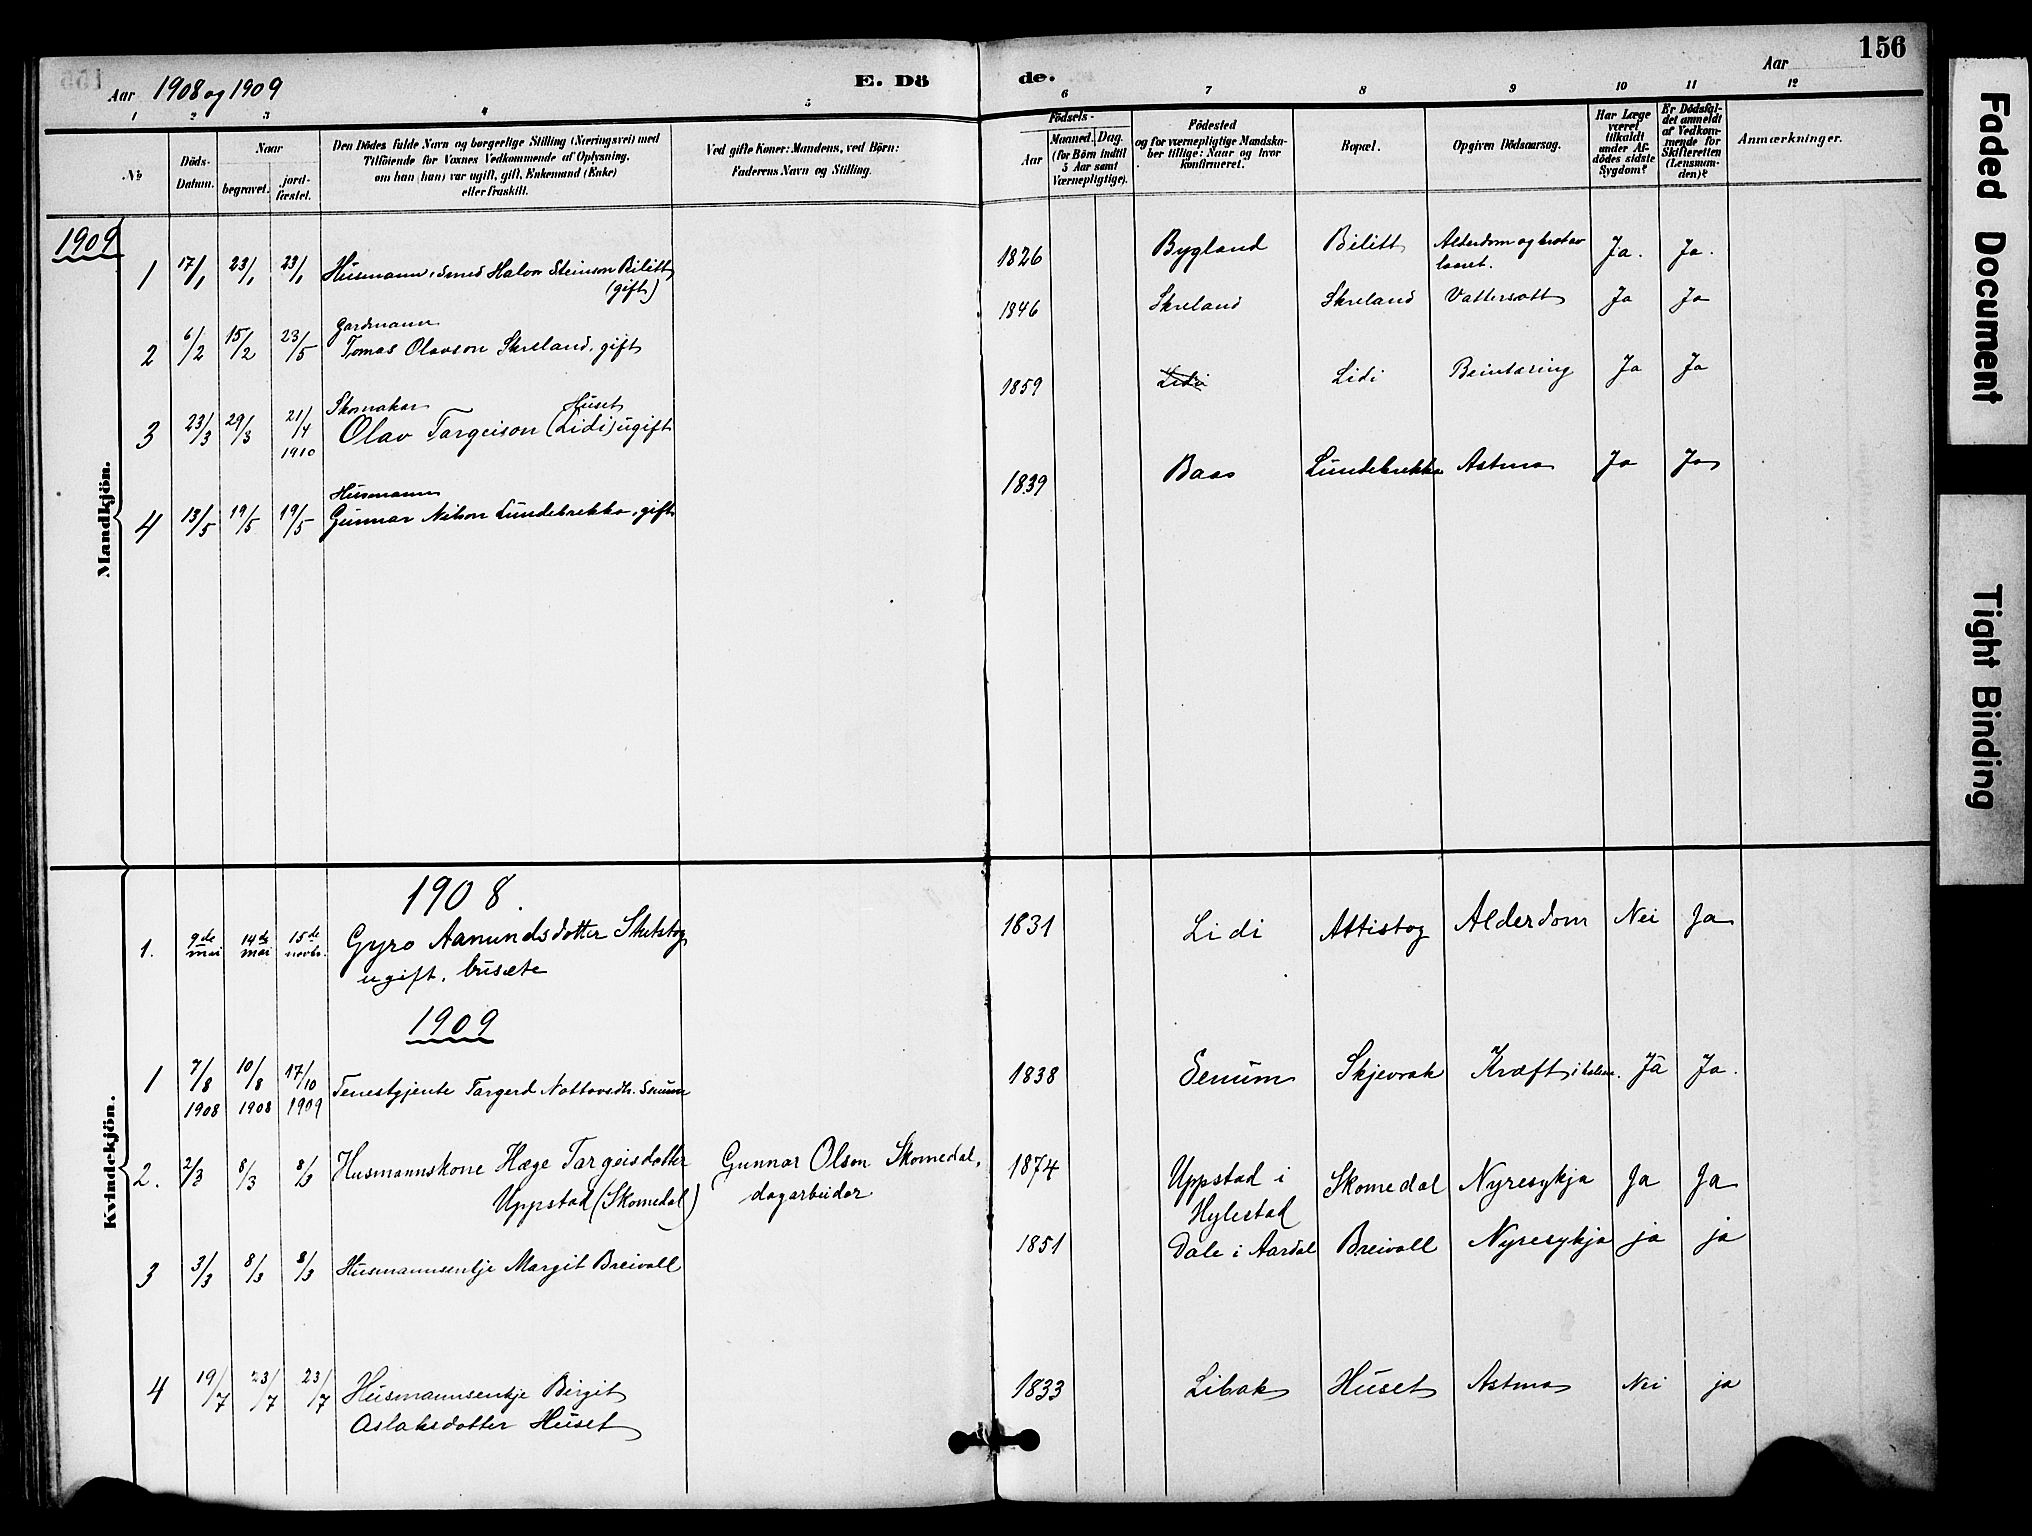 156
Aar 1908 og 1909
E. Dö
de.
Aar
1 2 3 4 5 6 7 8 9 10 11 12
№
Döds-
Datum.
Naar
begravet.
jord-
fæstet.
Den Dödes fulde Navn og borgerlige Stilling (Næringsvei) med
Tilföiende for Voxnes Vedkommende af Oplysning,
om han (hun) var ugift, gift, Enkemand (Enke)
eller fraskilt.
Ved gifte Koner: Mandens, ved Börn:
Faderens Navn og Stilling.
Födsels-
Aar
Maaned. Dag.
(for Börn indtil
5 Aar samt
Værnepligtige).
Födested
og for værnepligtige Mandska-
ber tillige: Naar og hvor
konfirmeret.
Bopæl.
Opgiven Dödsaarsag.
Har Læge
været
tilkaldt
under Af-
dödes sidste
Sygdom?
Er Dödsfal-
det anmeldt
af Vedkom-
mende for
Skifteretten
(Lensman-
den)?
Anmærkninger.
Mandkjön.
1909
1 17/1 23/1 23/1 Husmann, smed Halvor Steinson Bilitt
(gift)
1826 Bygland Bilitt Alderdom og brot av
laaret. Ja. Ja.
2 6/2 15/2 23/5 Gardmann
Tomas Olavson Skreland, gift
1846 Skreland Skreland Vattersott Ja Ja
3 23/3 29/3 21/4 1910 Skomakar Huset
Olav Targeison (Lidi) ugift
1859 Lidi Lidi Beintæring Ja Ja
4 13/5 19/5 19/5 Husmann
Gunnar Nilson Lundebrekka, gift
1839 Baas Lundebrekka Astma Ja Ja
Kvindekjön.
1908.
1. 9de mai 14de mai 15de novbr. Gyro Aamundsdotter
ugift, busete
1831 Lidi Attistog Alderdom Nei Ja
1909
1 7/8 1908 10/8 1908 17/10 1909 Tenestgjente Targerd Nottovsdtr. Senum
1838 Senum Skjevrak Kræft i Ja Ja.
2. 2/3 8/3 8/3 Husmannskone Hæge Targeisdotter
Uppstad (Skomedal)
Gunnar Olson Skomedal,
dagarbeidar
1874 Uppstad i
Hylestad Skomedal Nyresykja Ja Ja
3 3/3 8/3 8/3 Husmannsenkje Margit Breivoll
1851 Dale i Aardal Breivoll Nyresykja ja ja
4 19/7 23/7 23/7 Husmannsenkje Birgit
Aslaksdotter Huset
1833 Libak Huset Astma Nei ja
Faded Document
Tight Binding